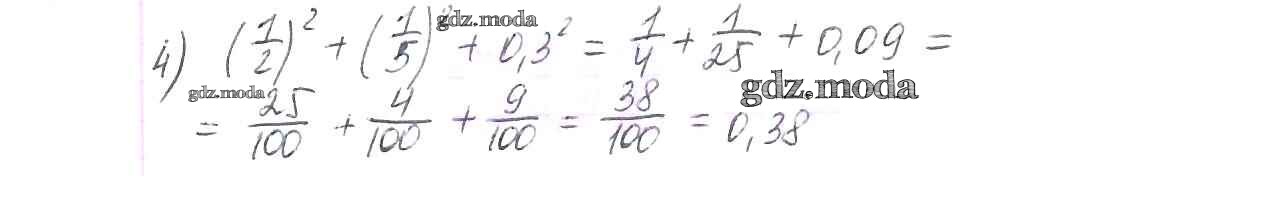 4) (1/2)² + (1/5)² + 0,3² = 1/4 + 1/25 + 0,09 =
gdz.moda
gdz.moda
gdz.moda
= 25/100 + 4/100 + 9/100 = 38/100 = 0,38